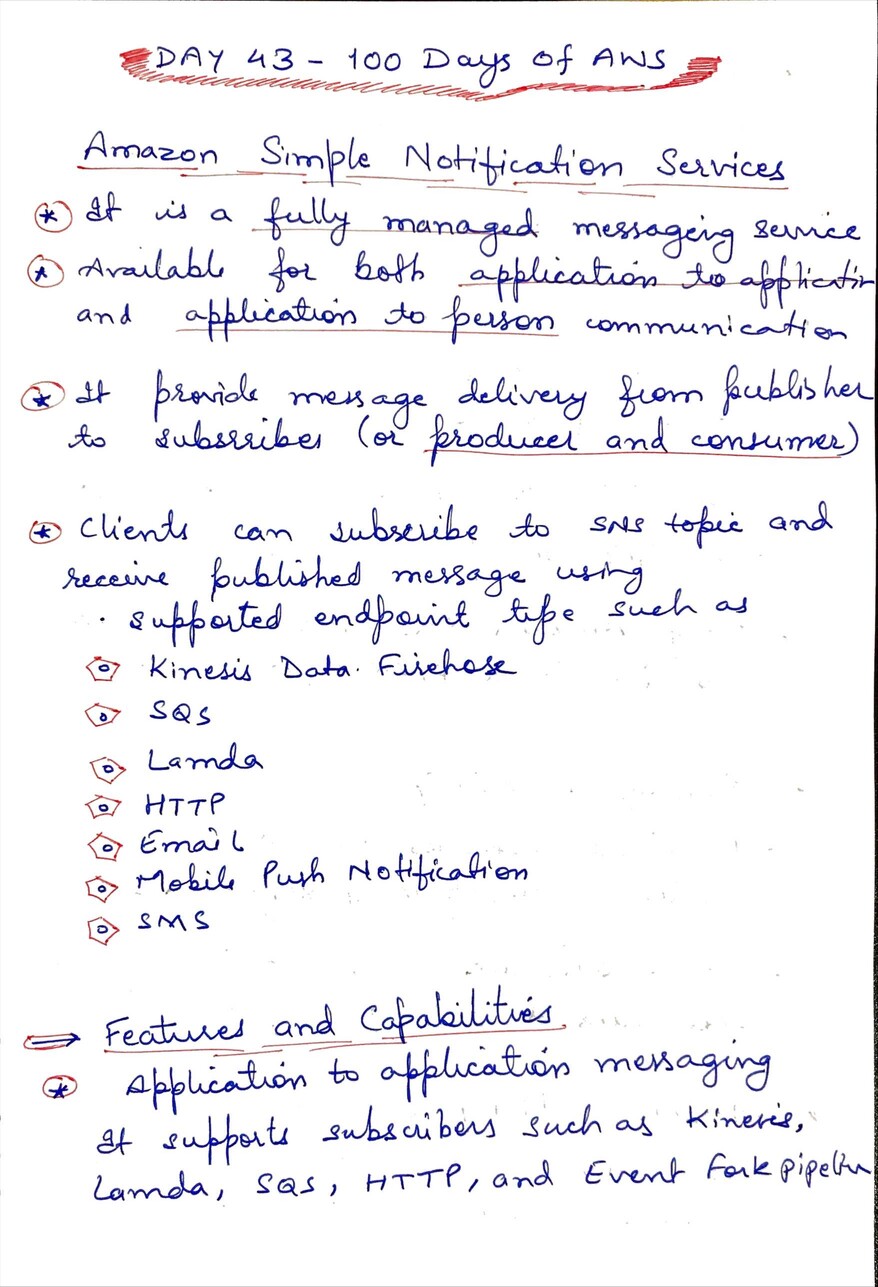 DAY 43 - 100 Days of AWS
Amazon Simple Notification Services
It is a fully managed messageing service
Available for both application to applicatin
and application to person communication
It provide message delivery from publisher
to subssribes (or producer and consumer)
Clients can subscribe to SNS topic and
receive published message using
. supported endpoint type such as
Kinesis Data. Firehose
SQS
Lamda
HTTP
Email
Mobile Push Notification
SMS
⇒ Features and Capabilities
Application to application messaging
It supports subscribers such as Kinesis,
Lamda, SQS, HTTP, and Event Fork